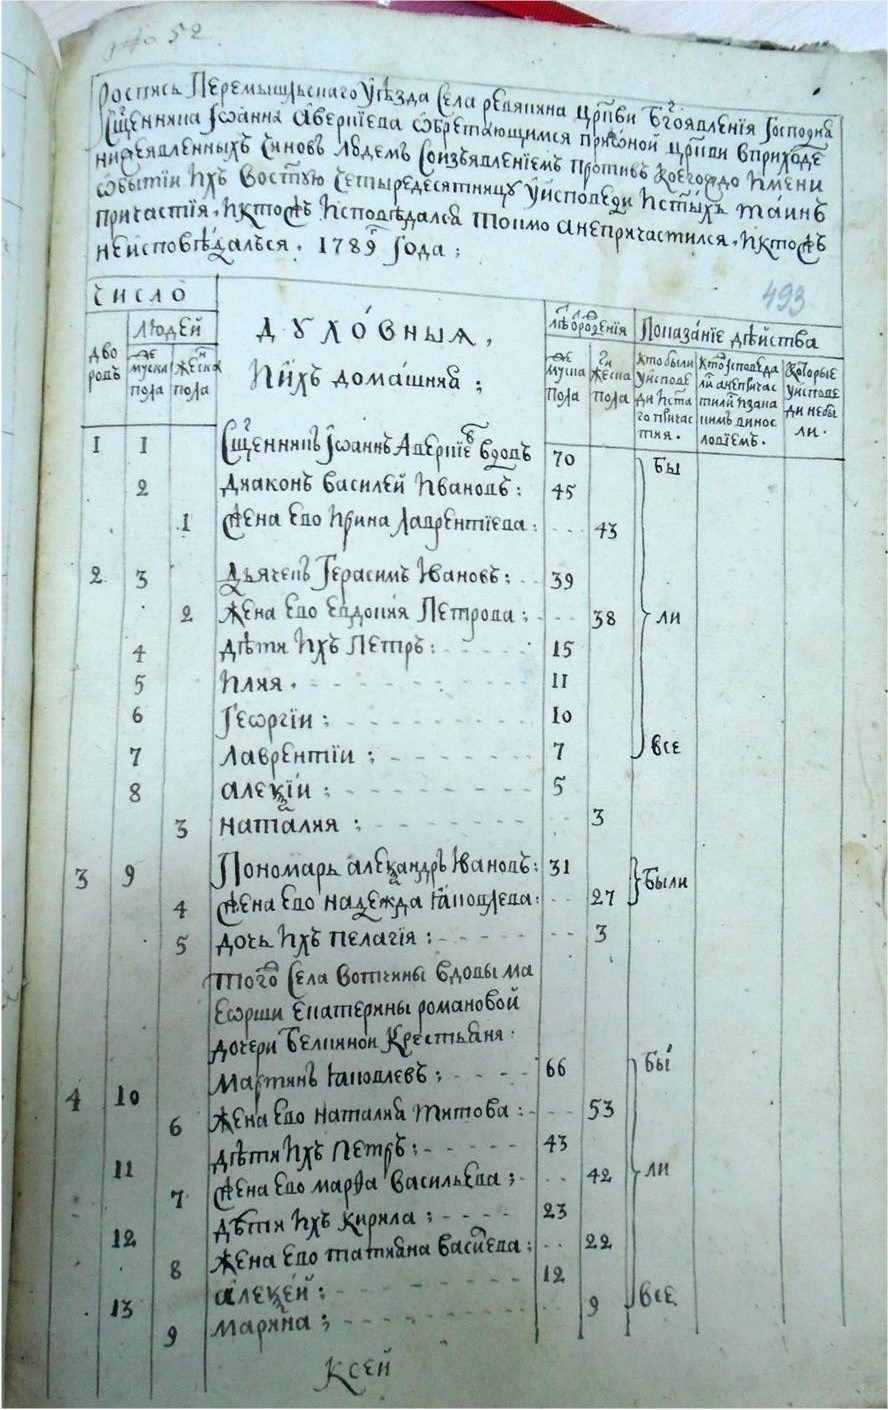 № 52
Роспись Перемышльскаго Уѣзда Села ревякина Цр҃кви Бг҃оявленїя Господня
Сщ҃енника Іѡанна Аверкїева ѡбретающимся при ѡной цр҃кви вприходѣ
нижеявленныхъ чиновъ людемъ Соизъявленїемъ Противъ коегождо имени
ѡбытїи ихъ Востую четыредесятницу Уисповеди истыхъ таинъ
причастїя, иктожъ исповѣдался токмо анепричастился, иктожъ
неисповѣдался. 1789г Года ;
493
число
Людей
дво ровъ
мужеска пола
женска пола
Духовныя,
Иихъ домашнїя ;
лѣ ѿрожденїя
мужеска пола
женска пола
Показанїе дѣйства
кто были Уисповеди иста го причастия.
кто исповеда ли анепричастили изакакимъ винословїемъ.
Которые Уисповеди небыли.
1 1 Сщ҃енникъ Іѡаннъ Аверкїев вдовъ 70 бы
2 Диаконъ Василей Ивановъ ; 45
1 Жена Ево Ирина Лаврентїева : 43
2 3 Дьячекъ Герасимъ Ивановъ ; 39
2 Жена Ево Евдокия Петрова ; 38 ли
4 Дѣти Ихъ Петръ : 15
5 Илия . 11
6 Георгїи ; 10
7 Лаврентїи ; 7 все
8 Алеѯїи : 5
3 Наталия ; 3
3 9 Пономарь алеѯандръ Ивановъ : 31 были
4 Жена Ево Надежда Іаковлева : 27
5 дочь Ихъ Пелагїя : 3
того Села Вотчины вдовы ма
еорши Екатерины романовой
дочери Белкиной Крестьяня
4 10 Мартинъ Іаковлевъ ; 66 бы
6 Жена Ево Наталия Титова : 53
11 дѣти Ихъ Петръ : 43
7 Жена Ево марѳа Васильева ; 42 ли
12 Дѣти Ихъ Кирила ; 23
8 Жена Ево татияна васиева ; 22
13 алеѯей : 12
9 марина ; 9 все
Ксей